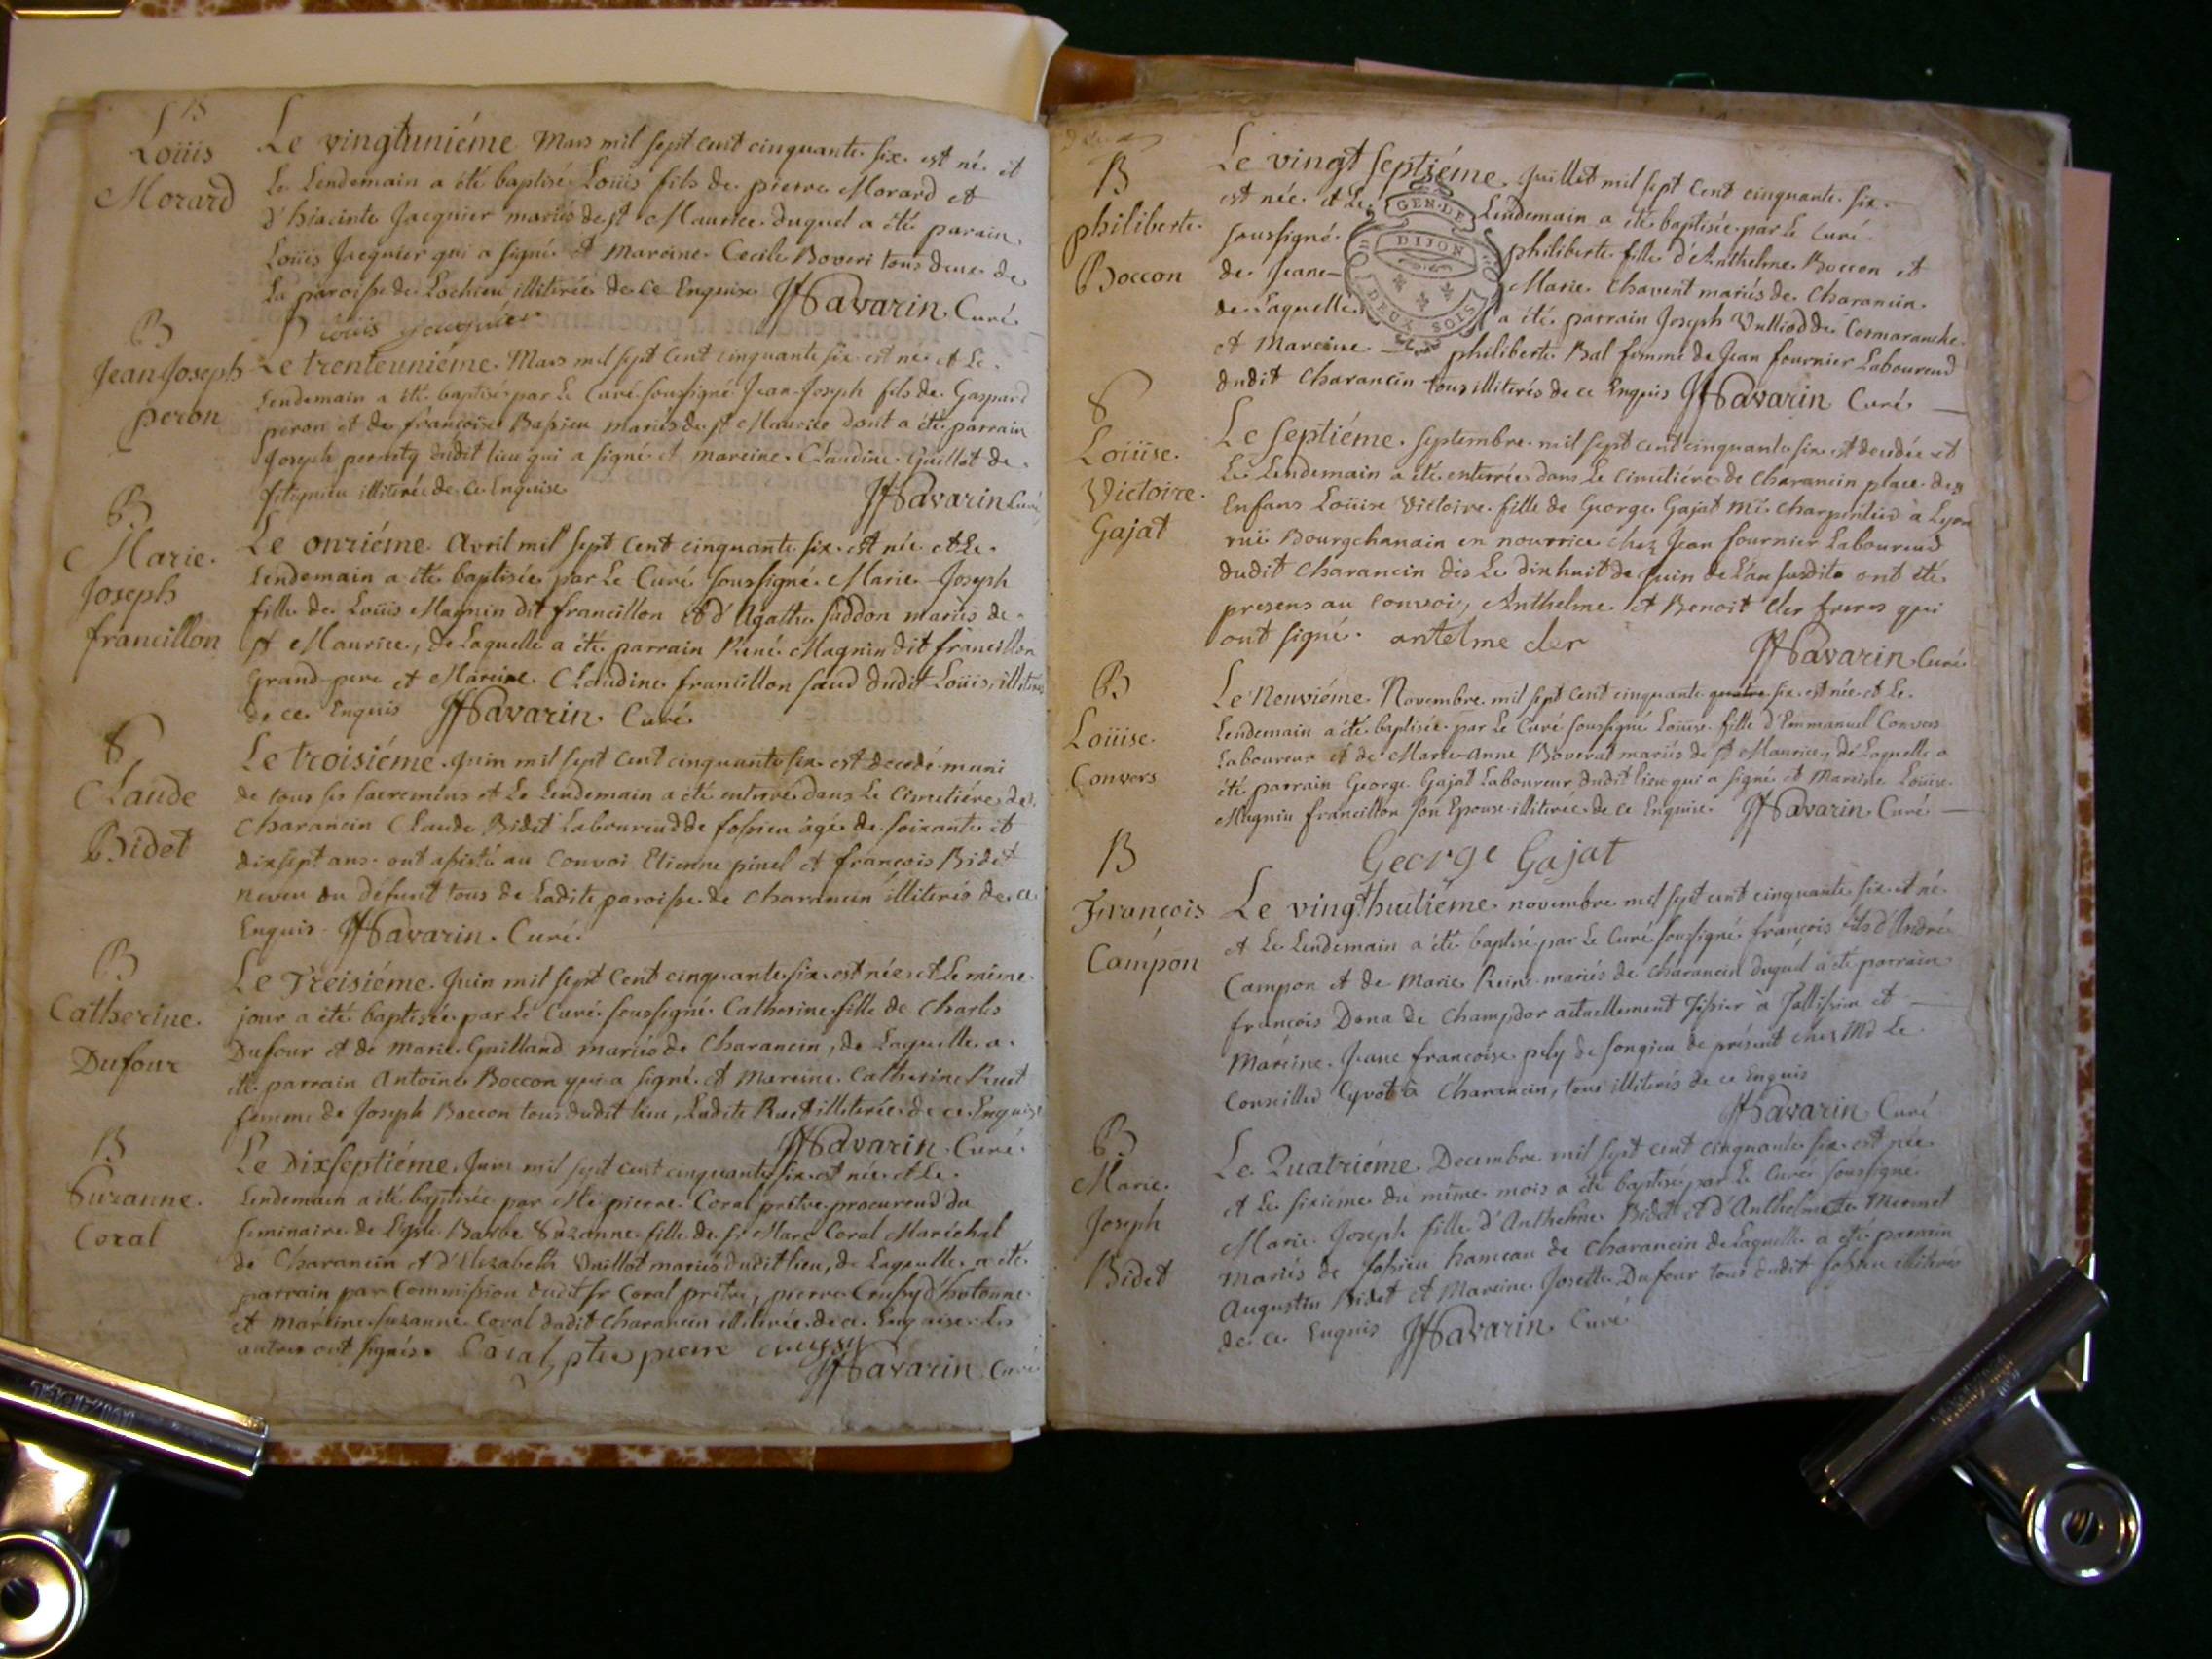 B
Loüis
Morard
Le vingtuniéme Mars mil sept cent cinquante six est né et
Le Lendemain a été baptisé Loüis fils de pierre Morard et
d'hiacinte Jacquier mariés de st Maurice duquel a été parain
Loüis Jacquier qui a signé et Mareine Cecile Boveri tous deux de
La paroisse de Lochieu illiterée de ce Enquise JfSavarin Curé
Louis jacquier
B
Jean Joseph
peron
Le trenteuniéme Mars mil sept cent cinquante six est né et Le
Lendemain a été baptisé par Le Curé soussigné Jean-Joseph fils de Gaspard
peron et de françoise Bassieu mariés de st Maurice dont a été parrain
Joseph pernety dudit lieu qui a signé et mareine Claudine Guillot de
fitignieu illiterée de ce Enquise JfSavarin Curé
B
Marie
Joseph
francillon
Le onziéme Avril mil sept cent cinquante six est née et Le
Lendemain a été baptisée par Le Curé soussigné Marie-Joseph
fille de Loüis Magnin dit francillon et d'Agathe faddon mariés de
st Maurice, de Laquelle a été parrain René Magnin dit francillon
Grand-pere et Mareine Claudine francillon sœur dudit Loüis, illiterés
de ce Enquis JfSavarin Curé
S
Claude
Bidet
Le troisiéme Juin mil sept cent cinquante six est decedé muni
de tous ses sacremens et Le Lendemain a été enterré dans Le Cimetiére de
Charancin Claude Bidet Laboureur de fossieu âgé de soixante et
dixsept ans ont assisté au Convoi Etienne pinel et françois Bidet
neveu du défunt tous de Ladite paroisse de Charancin illiterés de ce
Enquis JfSavarin Curé
B
Catherine
Dufour
Le Treisiéme Juin mil sept Cent cinquante six est née et Le même
jour a été baptisée par Le Curé soussigné Catherine fille de Charles
Dufour et de Marie Guilland mariés de Charancin, de Laquelle a
été parrain Antoine Boccon qui a signé et Mareine Catherine Ruet
femme de Joseph Boccon tous dudit lieu, Ladite Ruet illiterée de ce Enquise
JfSavarin Curé
B
Suzanne
Coral
Le Dixseptiéme Juin mil sept cent cinquante six est née et Le
Lendemain a été baptisée par Me pierre Coral prêtre procureur du
seminaire de Barbe Suzanne fille de sr Marc Coral Maréchal
de Charancin et d'Elizabeth Vuillot mariés dudit lieu, de Laquelle a été
parrain par Commission dudit sr Coral prêtre, pierre Crussy d'hotonne
et maréine Suzanne Coral dudit Charancin illiterée de ce Enquise Les
autres ont signés Coral, ptre pierre crussy
JfSavarin Curé
B
philiberte
Boccon
Le vingt septiéme Juillet mil sept Cent cinquante six
est née et Le Lendemain a été baptisée par Le Curé
soussigné philiberte fille d'Anthelme Boccon et
de Jeane- Marie Chavent mariés de Charancin
de Laquelle a été parrain Joseph Vulliod de Cormaranche
et Mareine philiberte Bal femme de Jean fournier Laboureur
dudit Charancin tous illiterés de ce Enquis JfSavarin Curé
GEN. DE
DIJON
DEUX SOLS
S
Loüise
Victoire
Gajat
Le septiéme septembre mil sept cent cinquante six est decedée et
Le Lendemain a été enterrée dans Le cimetiére de Charancin place des
Enfans Loüise Victoire fille de George Gajat me charpentier à Lyon
rüe Bourgchanain en nourrice chez Jean fournier Laboureur
dudit Charancin dès Le dixhuit de Juin de L'an susdit ont été
presens au Convoi, Anthelme et Benoit Cler freres qui
ont signé antelme cler JfSavarin Curé
B
Loüise
Convers
Le Neuviéme Novembre mil sept cent cinquante quatre six est née et Le
Lendemain a été baptisée par Le Curé soussigné Loüise fille d'Emmanuel Convers
Laboureur et de Marie-Anne Boverat mariés de st Maurice, de Laquelle a
été parrain George Gajat Laboureur dudit lieu qui a signé et Mareine Loüise
Magnin francillon son Epouse illiterée de ce Enquise JfSavarin Curé
George Gajat
B
François
Campon
Le vingthuitiéme novembre mil sept cent cinquante six est né
et Le Lendemain a été baptisé par Le Curé soussigné françois fils d'André
Campon et de Marie Reine mariés de Charancin duquel a été parrain
françois Dona de Champdor actuellement Tissier à Tallissieu et
Maréine Jeane francoise pely de songieu de présent chez Mr Le
Conseiller Cyvot à Charancin, tous illiterés de ce Enquis
JfSavarin Curé
B
Marie
Joseph
Bidet
Le Quatriéme Decembre mil sept cent cinquante six est née
et Le sixiéme du même mois a été baptisé par Le Curé soussigné
Marie Joseph fille d'Anthelme Bidet et d'Anthelmette Mermet
mariés de fossieu hameau de Charancin de Laquelle a été parrain
Augustin Bidet et Mareine Josette Dufour tous dudit fossieu illiterés
de ce Enquis JfSavarin Curé